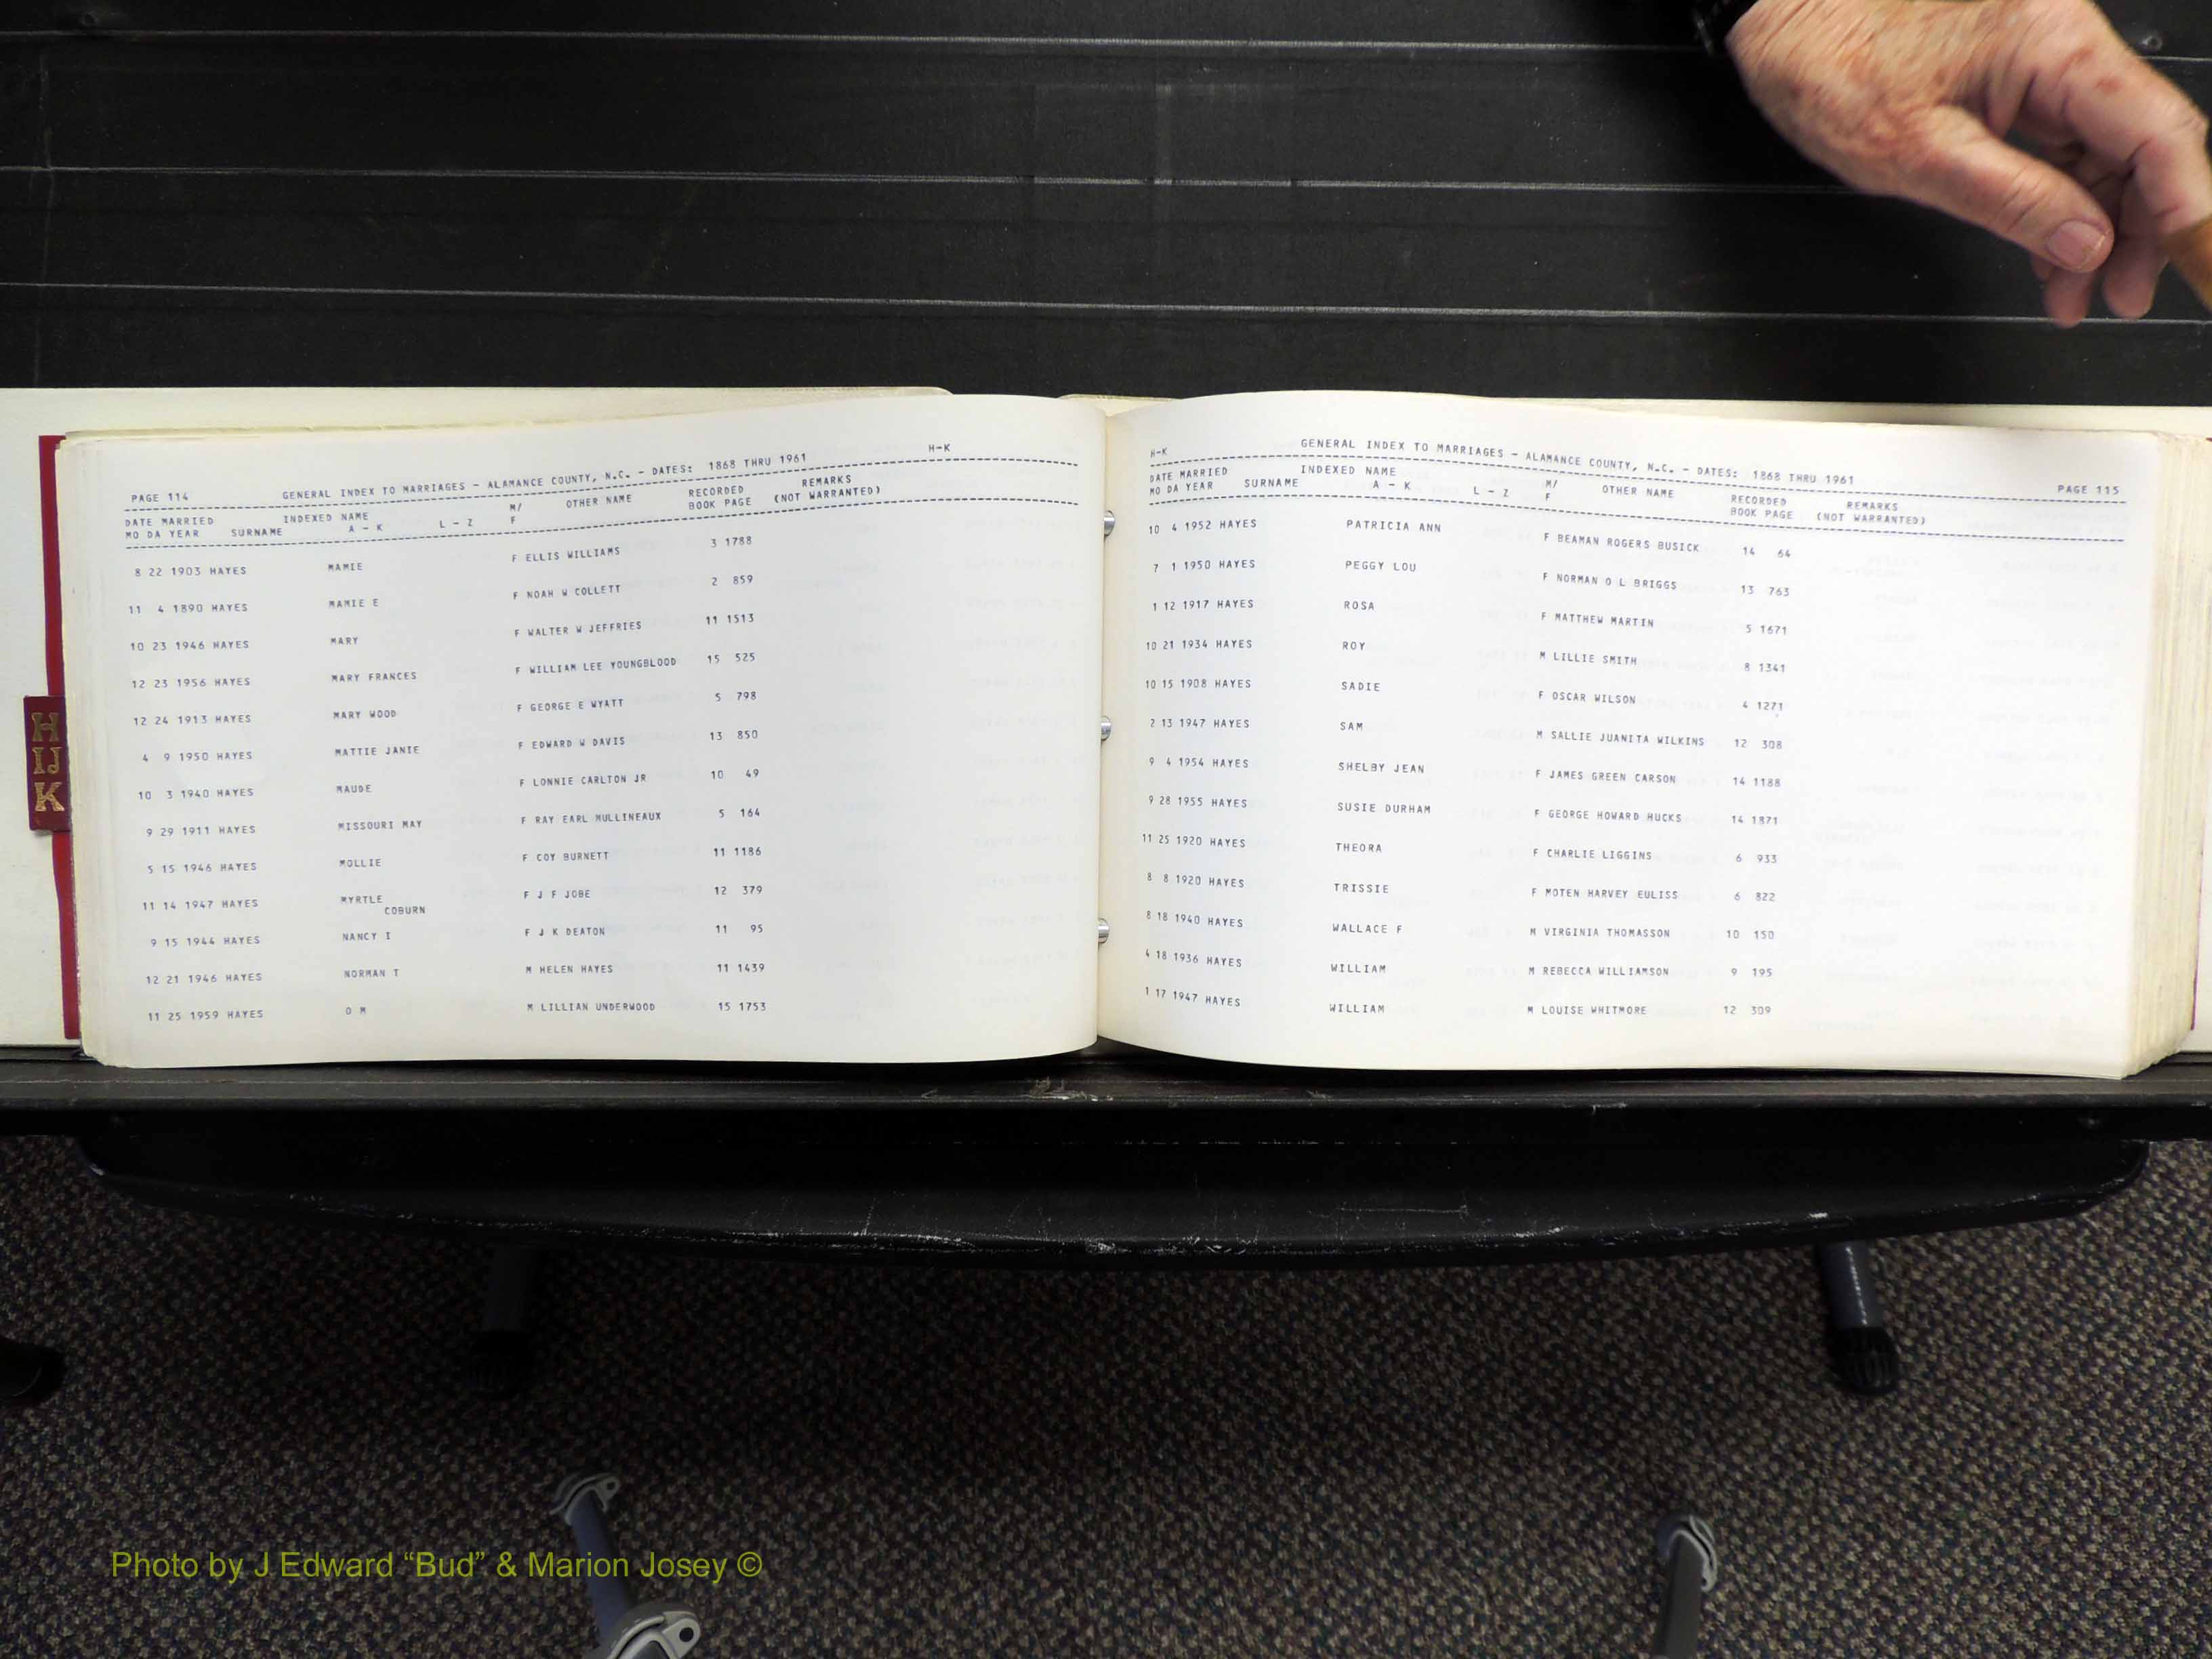 PAGE 114 GENERAL INDEX TO MARRIAGES - ALAMANCE COUNTY, N.C. - DATES: 1868 THRU 1961 H-K
DATE MARRIED INDEXED NAME M/ OTHER NAME RECORDED REMARKS
MO DA YEAR SURNAME A - K L - Z F BOOK PAGE (NOT WARRANTED)
8 22 1903 HAYES MAMIE F ELLIS WILLIAMS 3 1788
11 4 1890 HAYES MAMIE E F NOAH W COLLETT 2 859
10 23 1946 HAYES MARY F WALTER W JEFFRIES 11 1513
12 23 1956 HAYES MARY FRANCES F WILLIAM LEE YOUNGBLOOD 15 525
12 24 1913 HAYES MARY WOOD F GEORGE E WYATT 5 798
4 9 1950 HAYES MATTIE JANIE F EDWARD W DAVIS 13 850
10 3 1940 HAYES MAUDE F LONNIE CARLTON JR 10 49
9 29 1911 HAYES MISSOURI MAY F RAY EARL MULLINEAUX 5 164
5 15 1946 HAYES MOLLIE F COY BURNETT 11 1186
11 14 1947 HAYES MYRTLE F J F JOBE 12 379
COBURN
9 15 1944 HAYES NANCY I F J K DEATON 11 95
12 21 1946 HAYES NORMAN T M HELEN HAYES 11 1439
11 25 1959 HAYES O M M LILLIAN UNDERWOOD 15 1753
H-K GENERAL INDEX TO MARRIAGES - ALAMANCE COUNTY, N.C. - DATES: 1868 THRU 1961 PAGE 115
DATE MARRIED INDEXED NAME M/ OTHER NAME RECORDED REMARKS
MO DA YEAR SURNAME A - K L - Z F BOOK PAGE (NOT WARRANTED)
10 4 1952 HAYES PATRICIA ANN F BEAMAN ROGERS BUSICK 14 64
7 1 1950 HAYES PEGGY LOU F NORMAN O L BRIGGS 13 763
1 12 1917 HAYES ROSA F MATTHEW MARTIN 5 1671
10 21 1934 HAYES ROY M LILLIE SMITH 8 1341
10 15 1908 HAYES SADIE F OSCAR WILSON 4 1271
2 13 1947 HAYES SAM M SALLIE JUANITA WILKINS 12 308
9 4 1954 HAYES SHELBY JEAN F JAMES GREEN CARSON 14 1188
9 28 1955 HAYES SUSIE DURHAM F GEORGE HOWARD HUCKS 14 1871
11 25 1920 HAYES THEORA F CHARLIE LIGGINS 6 933
8 8 1920 HAYES TRISSIE F MOTEN HARVEY EULISS 6 822
8 18 1940 HAYES WALLACE F M VIRGINIA THOMASSON 10 150
4 18 1936 HAYES WILLIAM M REBECCA WILLIAMSON 9 195
1 17 1947 HAYES WILLIAM M LOUISE WHITMORE 12 309
H
IJ
K
Photo by J Edward “Bud” & Marion Josey ©